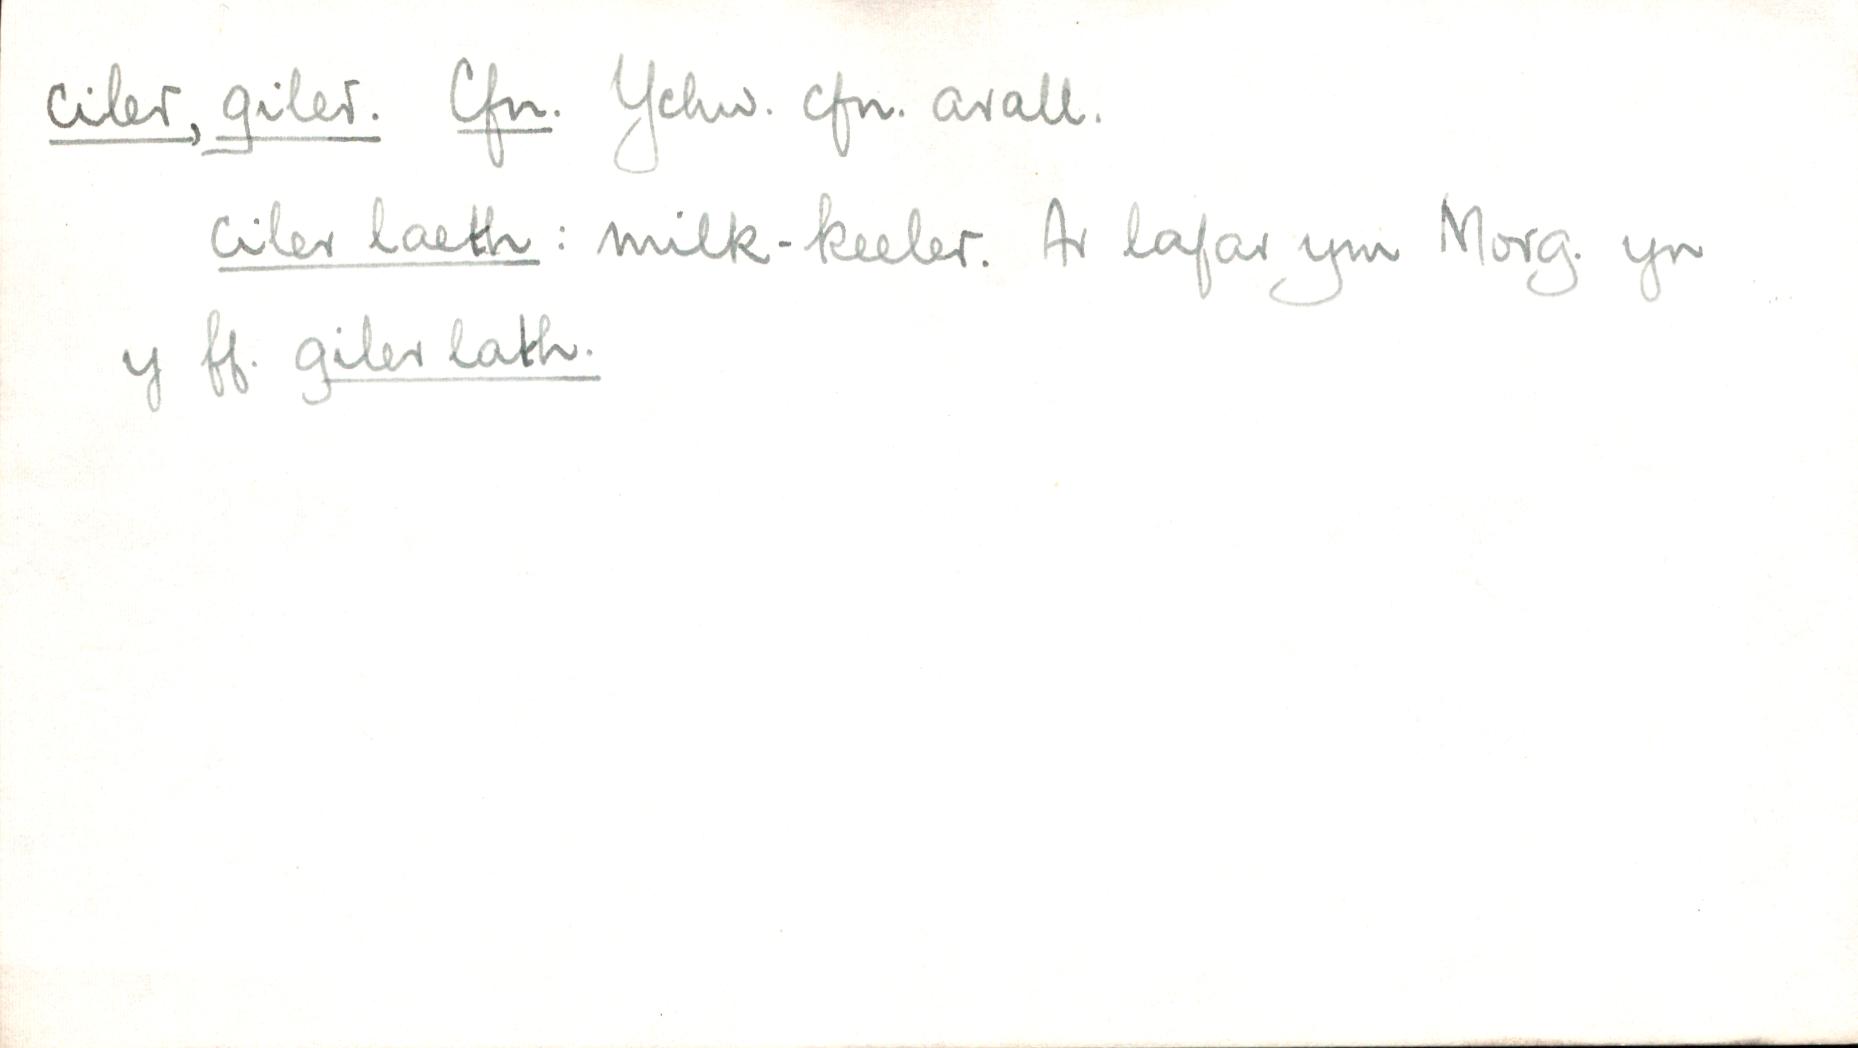 ciler, giler. Cfn. Ychw. cfn. arall.
ciler laeth: milk-keeler. Ar lafar ym Morg. yn
y ff. giler lath.